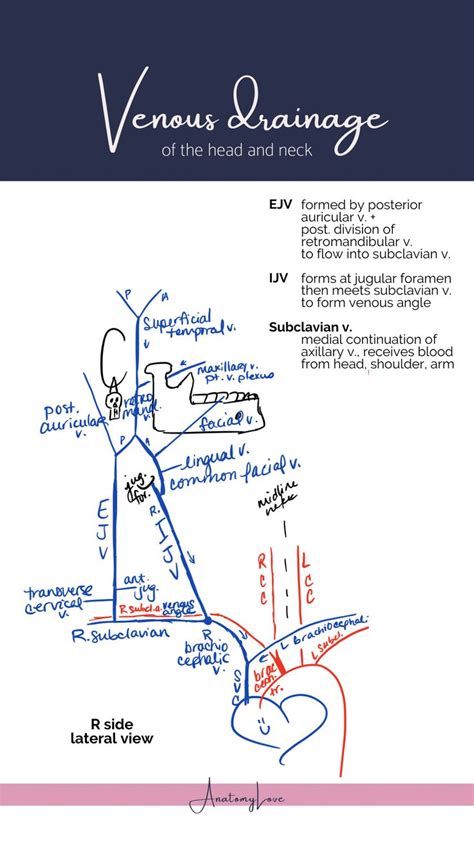 Venous drainage
of the head and neck
EJV formed by posterior
auricular v. +
post. division of
retromandibular v.
to flow into subclavian v.
IJV forms at jugular foramen
then meets subclavian v.
to form venous angle
Subclavian v.
medial continuation of
axillary v., receives blood
from head, shoulder, arm
P A
superficial
temporal v.
maxillary v.
pt. v. plexus
retro
mand.
post.
auricular
v.
facial v.
P A
lingual v.
common facial v.
jug.
for.
midline
neck
R. IJV
EJV
RCC
LCC
transverse
cervical
v.
ant.
jug.
R subcl. a.
venous
angle
R. subclavian
R
brachio
cephalic
v.
L brachiocephali.
L subcl.
SVC
brac
ceph.
tr.
R side
lateral view
AnatomyLove